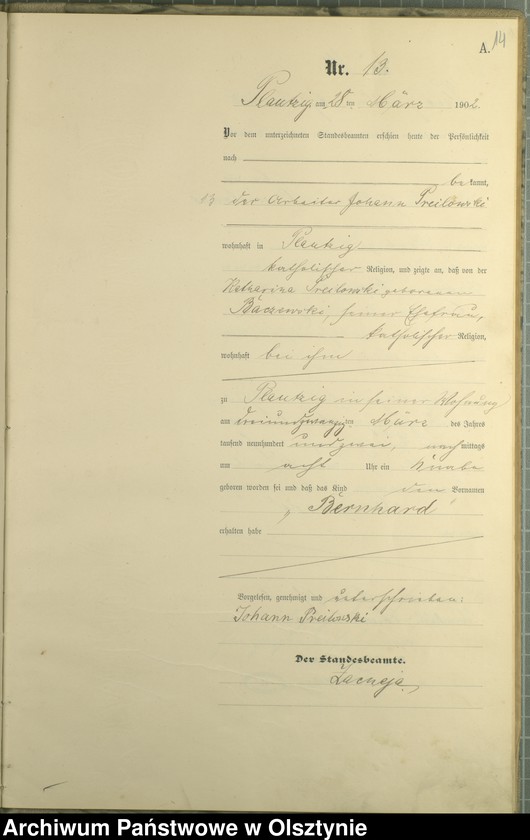 A. 14
Nr. 13.
Plautzig am 28 ten März 1902.
Vor dem unterzeichneten Standesbeamten erschien heute der Persönlichkeit
nach
bekannt,
13 der Arbeiter Johann Preilowski
wohnhaft in Plautzig
katholischer Religion, und zeigte an, daß von der
Katharina Preilowski geborenen
Baczewski, seiner Ehefrau,
katholischer Religion,
wohnhaft bei ihm
zu Plautzig in seiner Wohnung
am dreiundzwanzig ten März des Jahres
tausend neunhundert undzwei, nachmittags
um acht Uhr ein Knabe
geboren worden sei und daß das Kind den Vornamen
„Bernhard“
erhalten habe
Vorgelesen, genehmigt und unterschrieben:
Johann Preilowski
Der Standesbeamte.
Archiwum Państwowe w Olsztynie